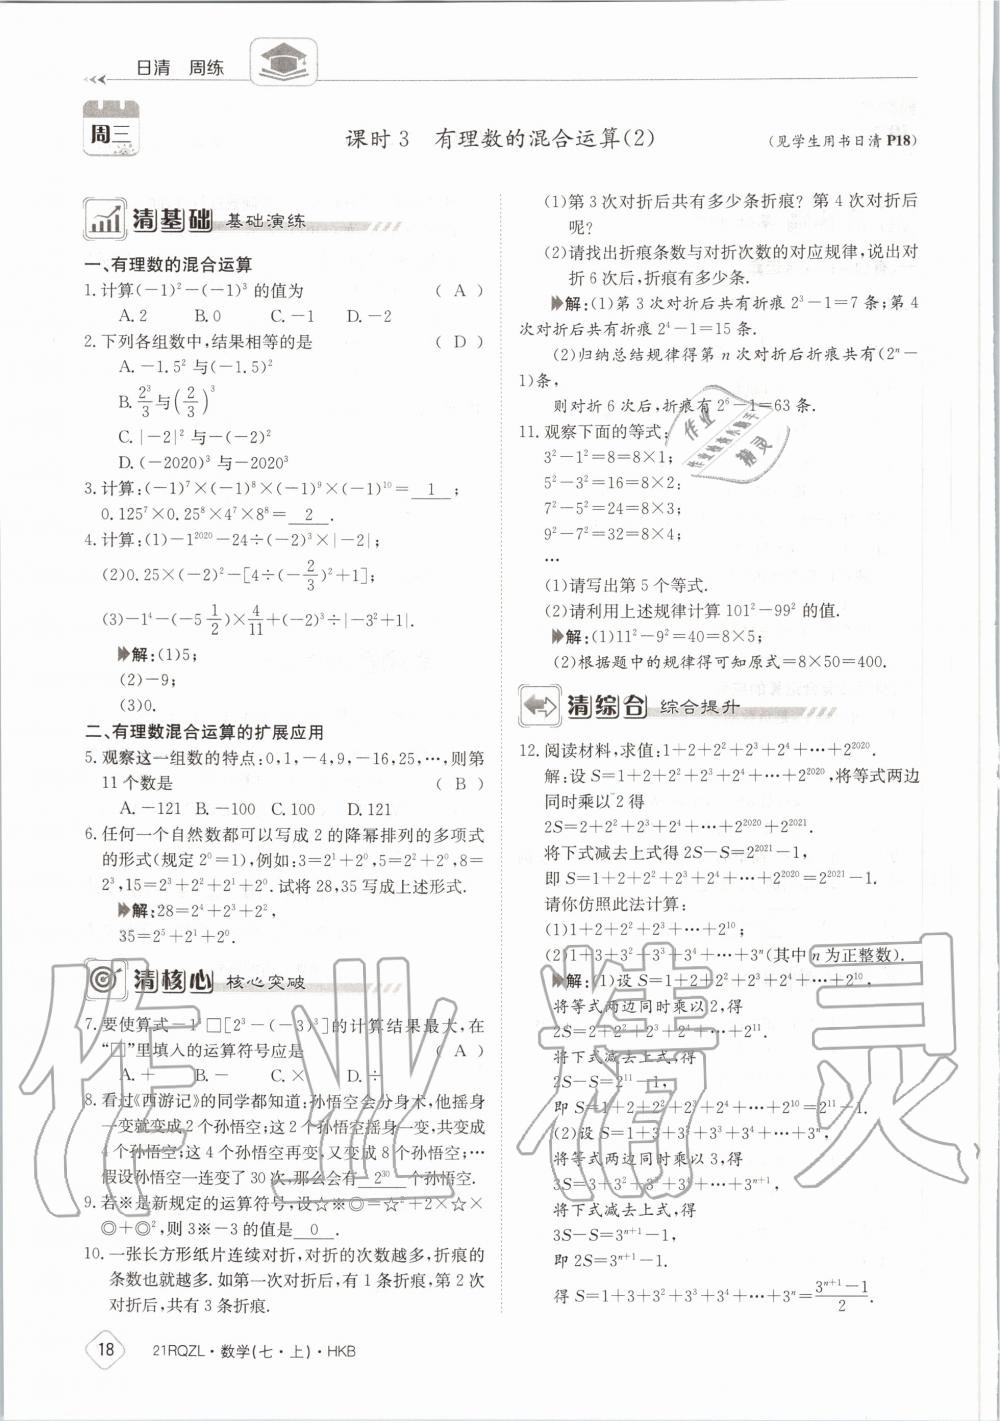 日清 周练
周三
课时3 有理数的混合运算(2)
(见学生用书日清P18)
清基础 基础演练
一、有理数的混合运算
1.计算(-1)²-(-1)³的值为 ( A )
A.2 B.0 C.-1 D.-2
2.下列各组数中,结果相等的是 ( D )
A.-1.5²与(-1.5)²
B.2³/3与(2/3)³
C.|-2|²与-(-2)²
D.(-2020)³与-2020³
3.计算:(-1)⁷×(-1)⁸×(-1)⁹×(-1)¹⁰= 1 ;
0.125⁷×0.25⁸×4⁷×8⁸= 2 .
4.计算:(1)-1²⁰²⁰-24÷(-2)³×|-2|;
(2)0.25×(-2)²-[4÷(-2/3)²+1];
(3)-1⁴-(-5 1/2)×4/11+(-2)³÷|-3²+1|.
解:(1)5;
(2)-9;
(3)0.
二、有理数混合运算的扩展应用
5.观察这一组数的特点:0,1,-4,9,-16,25,…,则第
11个数是 ( B )
A.-121 B.-100 C.100 D.121
6.任何一个自然数都可以写成2的降幂排列的多项式
的形式(规定2⁰=1),例如:3=2¹+2⁰,5=2²+2⁰,8=
2³,15=2³+2²+2¹+2⁰.试将28,35写成上述形式.
解:28=2⁴+2³+2²,
35=2⁵+2¹+2⁰.
清核心 核心突破
7.要使算式-1 □[2³-(-3)³]的计算结果最大,在
“□”里填入的运算符号应是 ( A )
A.+ B.- C.× D.÷
8.看过《西游记》的同学都知道:孙悟空会分身术,他摇身
一变就变成2个孙悟空;这2个孙悟空摇身一变,共变成
4个孙悟空;这4个孙悟空再变,又变成8个孙悟空;…
假设孙悟空一连变了30次,那么会有 2³⁰ 个孙悟空.
9.若※是新规定的运算符号,设☆※◎=☆²+2×☆×
◎+◎²,则3※-3的值是 0 .
10.一张长方形纸片连续对折,对折的次数越多,折痕的
条数也就越多.如第一次对折后,有1条折痕,第2次
对折后,共有3条折痕.
(1)第3次对折后共有多少条折痕?第4次对折后
呢?
(2)请找出折痕条数与对折次数的对应规律,说出对
折6次后,折痕有多少条.
解:(1)第3次对折后共有折痕2³-1=7条;第4
次对折后共有折痕2⁴-1=15条.
(2)归纳总结规律得第n次对折后折痕共有(2ⁿ-
1)条,
则对折6次后,折痕有2⁶-1=63条.
11.观察下面的等式:
3²-1²=8=8×1;
5²-3²=16=8×2;
7²-5²=24=8×3;
9²-7²=32=8×4;
…
(1)请写出第5个等式.
(2)请利用上述规律计算101²-99²的值.
解:(1)11²-9²=40=8×5;
(2)根据题中的规律得可知原式=8×50=400.
清综合 综合提升
12.阅读材料,求值:1+2+2²+2³+2⁴+…+2²⁰²⁰.
解:设S=1+2+2²+2³+2⁴+…+2²⁰²⁰,将等式两边
同时乘以2得
2S=2+2²+2³+2⁴+…+2²⁰²⁰+2²⁰²¹.
将下式减去上式得2S-S=2²⁰²¹-1,
即S=1+2+2²+2³+2⁴+…+2²⁰²⁰=2²⁰²¹-1.
请你仿照此法计算:
(1)1+2+2²+2³+…+2¹⁰;
(2)1+3+3²+3³+3⁴+…+3ⁿ(其中n为正整数).
解:(1)设S=1+2+2²+2³+2⁴+…+2¹⁰,
将等式两边同时乘以2,得
2S=2+2²+2³+2⁴+…+2¹¹.
将下式减去上式,得
2S-S=2¹¹-1,
即S=1+2+2²+2³+2⁴+…+2¹⁰=2¹¹-1.
(2)设S=1+3+3²+3³+3⁴+…+3ⁿ,
将等式两边同时乘以3,得
3S=3+3²+3³+3⁴+…+3ⁿ⁺¹,
将下式减去上式,得
3S-S=3ⁿ⁺¹-1,
即2S=3ⁿ⁺¹-1.
得S=1+3+3²+3³+3⁴+…+3ⁿ=(3ⁿ⁺¹-1)/2.
18 21RQZL·数学(七·上)·HKB
作业精灵